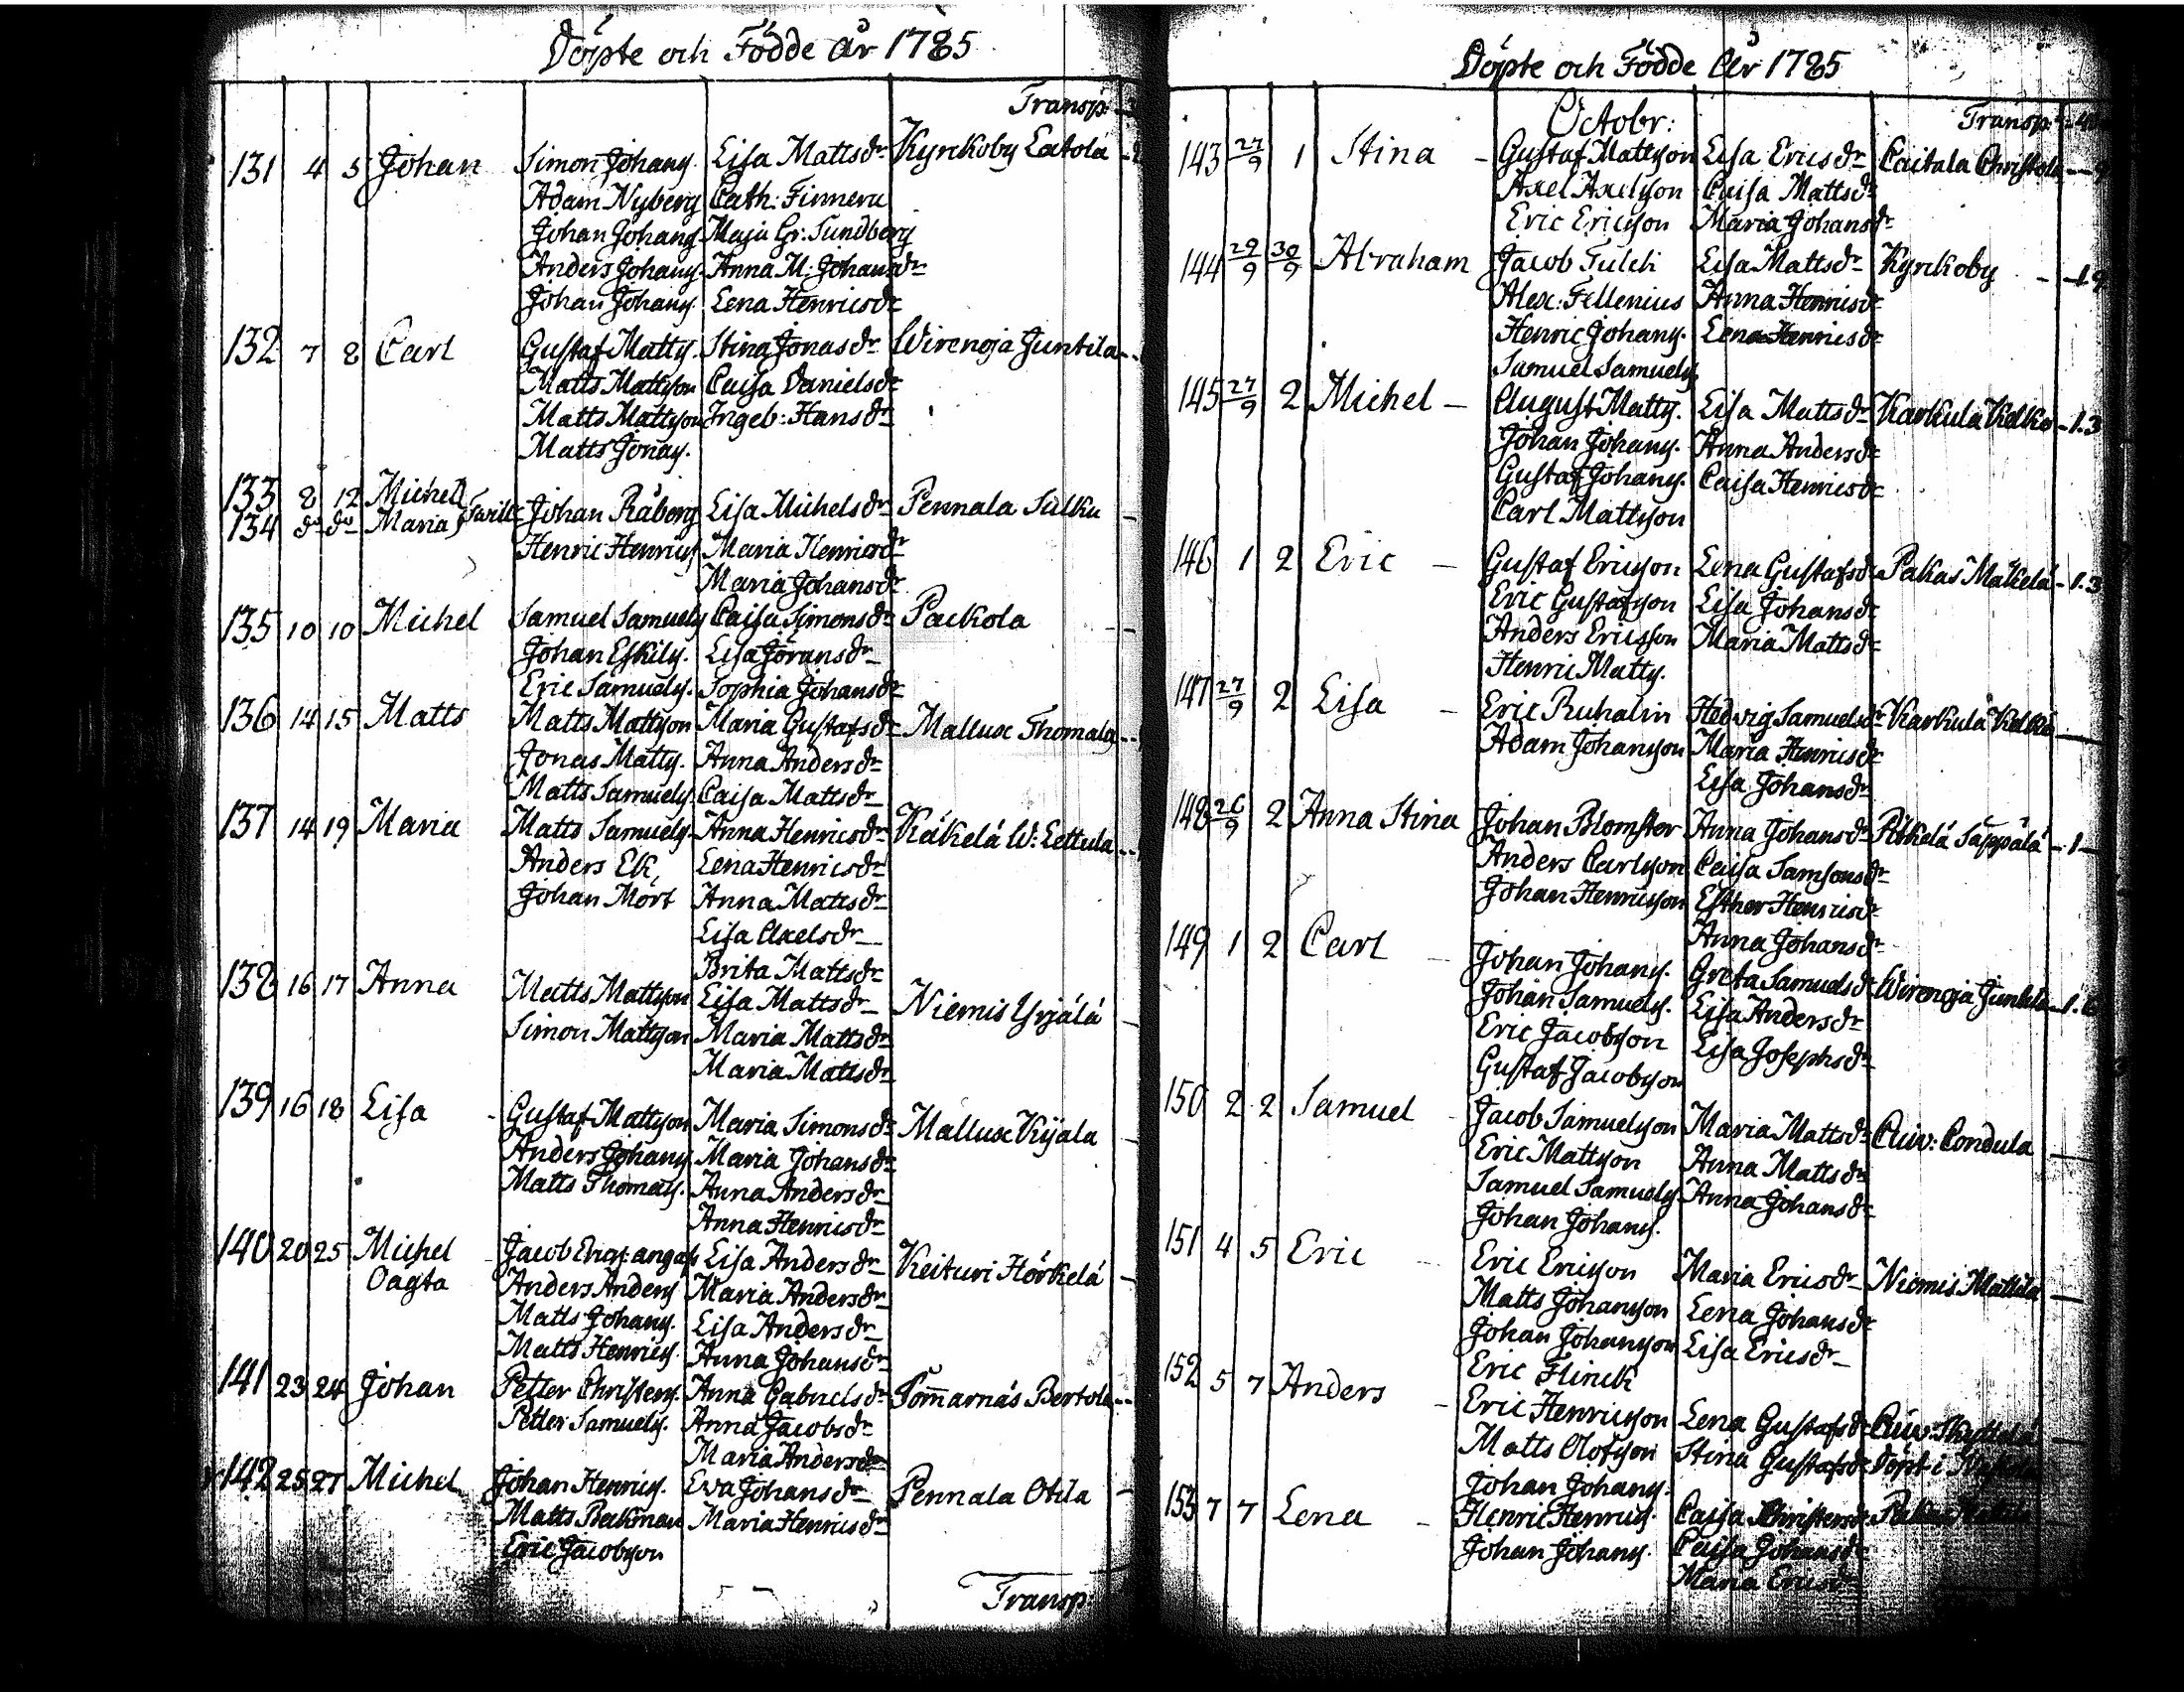 Döpte och Födde År 1785
Transp:
131 4 5 Johan Simon Johans. Lisa Mattsdr Kyrckoby Latola
Adam Nyberg Cath:
Johan Johans. Maja Gr: Sundberg
Anders Johans. Anna M: Johansdr
Johan Johans. Lena Henricsdr
132 7 8 Carl Gustaf Matts. Stina Jonasdr Wirenoja Juntila
Matts Mattsson Caisa Danielsdr
Matts Mattsson Ingeb: Hansdr
Matts Jonas.
133 8 12 Michel
134 do do Maria Johan Råberg Lisa Michelsdr Pennala Sulku
Henric Henrics Maria Henricsdr
Maria Johansdr
135 10 10 Michel Samuel Samuels Caisa Simonsdr Packola
Johan Eskils. Lisa Göransdr
Eric Samuels. Sophia Johansdr
136 14 15 Matts Matts Mattsson Maria Gustafsdr Mallusc Thomala
Jonas Matts. Anna Andersdr
Matts Samuels. Caisa Mattsdr
137 14 19 Maria Matts Samuels. Anna Henricsdr Käkelä W: Lettula
Anders Elk, Lena Henricsdr
Johan Mört Anna Mattsdr
Lisa Axelsdr
Brita Mattsdr
138 16 17 Anna Matts Mattsson Lisa Mattsdr Niemis Yrjälä
Simon Mattsson Maria Mattsdr
Maria Mattsdr
139 16 18 Lisa - Gustaf Mattsson Maria Simonsdr Mallusc Kijala
Anders Johans. Maria Johansdr
Matts Thomass. Anna Andersdr
Anna Henricsdr
140 20 25 Michel Jacob Lisa Andersdr Keituri Hörkelä
Oagta Anders Anders Maria Andersdr
Matts Johans. Lisa Andersdr
Matts Henrics. Anna Johansdr
141 23 24 Johan Petter Christers. Anna Gabrielsdr Tom̄arnäs Bertola
Petter Samuels. Anna Jacobsdr
Maria Andersdr
142 25 27 Michel Johan Henrics. Eva Johansdr Pennala Otila
Matts Backman Maria Henricsdr
Eric Jacobsson
Transp:
Döpte och Födde År 1785
Octobr: Transp:
143 27/9 1 Stina - Gustaf Mattsson Lisa Ericsdr Caitala Christola
Axel Axelsson Caisa Mattsdr
Eric Ericsson Maria Johansdr
144 29/9 30/9 Abraham Jacob Lisa Mattsdr Kyrckoby
Alex: Fellenius Anna Henricsdr
Henric Johans. Lena Henricsdr
Samuel Samuels
145 27/9 2 Michel - August Matts. Lisa Mattsdr Karkula Kelko - 1.3
Johan Johans. Anna Andersdr
Gustaf Johans. Caisa Henricsdr
Carl Mattsson
146 1 2 Eric - Gustaf Ericsson Lena Gustafsdr Pakas Mäkelä - 1.3
Eric Gustafsson Lisa Johansdr
Anders Ericsson Maria Mattsdr
Henric Matts.
147 27/9 2 Lisa - Eric Ruhalin Hedvig Samuelsdr Karkula Kelko
Adam Johansson Maria Henricsdr
Lisa Johansdr
148 26/9 2 Anna Stina Johan Blomster Anna Johansdr Säppälä - 1
Anders Carlsson Caisa Samsonsdr
Johan Henricsson Esther Henricsdr
Anna Johansdr
149 1 2 Carl - Johan Johans. Greta Samuelsdr Wirenoja Juntila
Johan Samuels. Lisa Andersdr
Eric Jacobsson Lisa Josephsdr
Gustaf Jacobsson
150 2 2 Samuel - Jacob Samuelsson Maria Mattsdr Cuiv: Condula
Eric Mattsson Anna Mattsdr
Samuel Samuels Anna Johansdr
Johan Johans.
151 4 5 Eric - Eric Ericsson Maria Ericsdr Niemis Mattila
Matts Johansson Lena Johansdr
Johan Johansson Lisa Ericsdr
Eric Flinck
152 5 7 Anders - Eric Henricsson Lena Gustafsdr Cuiv:
Matts Olofsson Stina Gustafsdr döpt i
Johan Johans.
153 7 7 Lena - Henric Henrics. Caisa Christersdr
Johan Johans. Caisa Johansdr
Maria Ericsdr